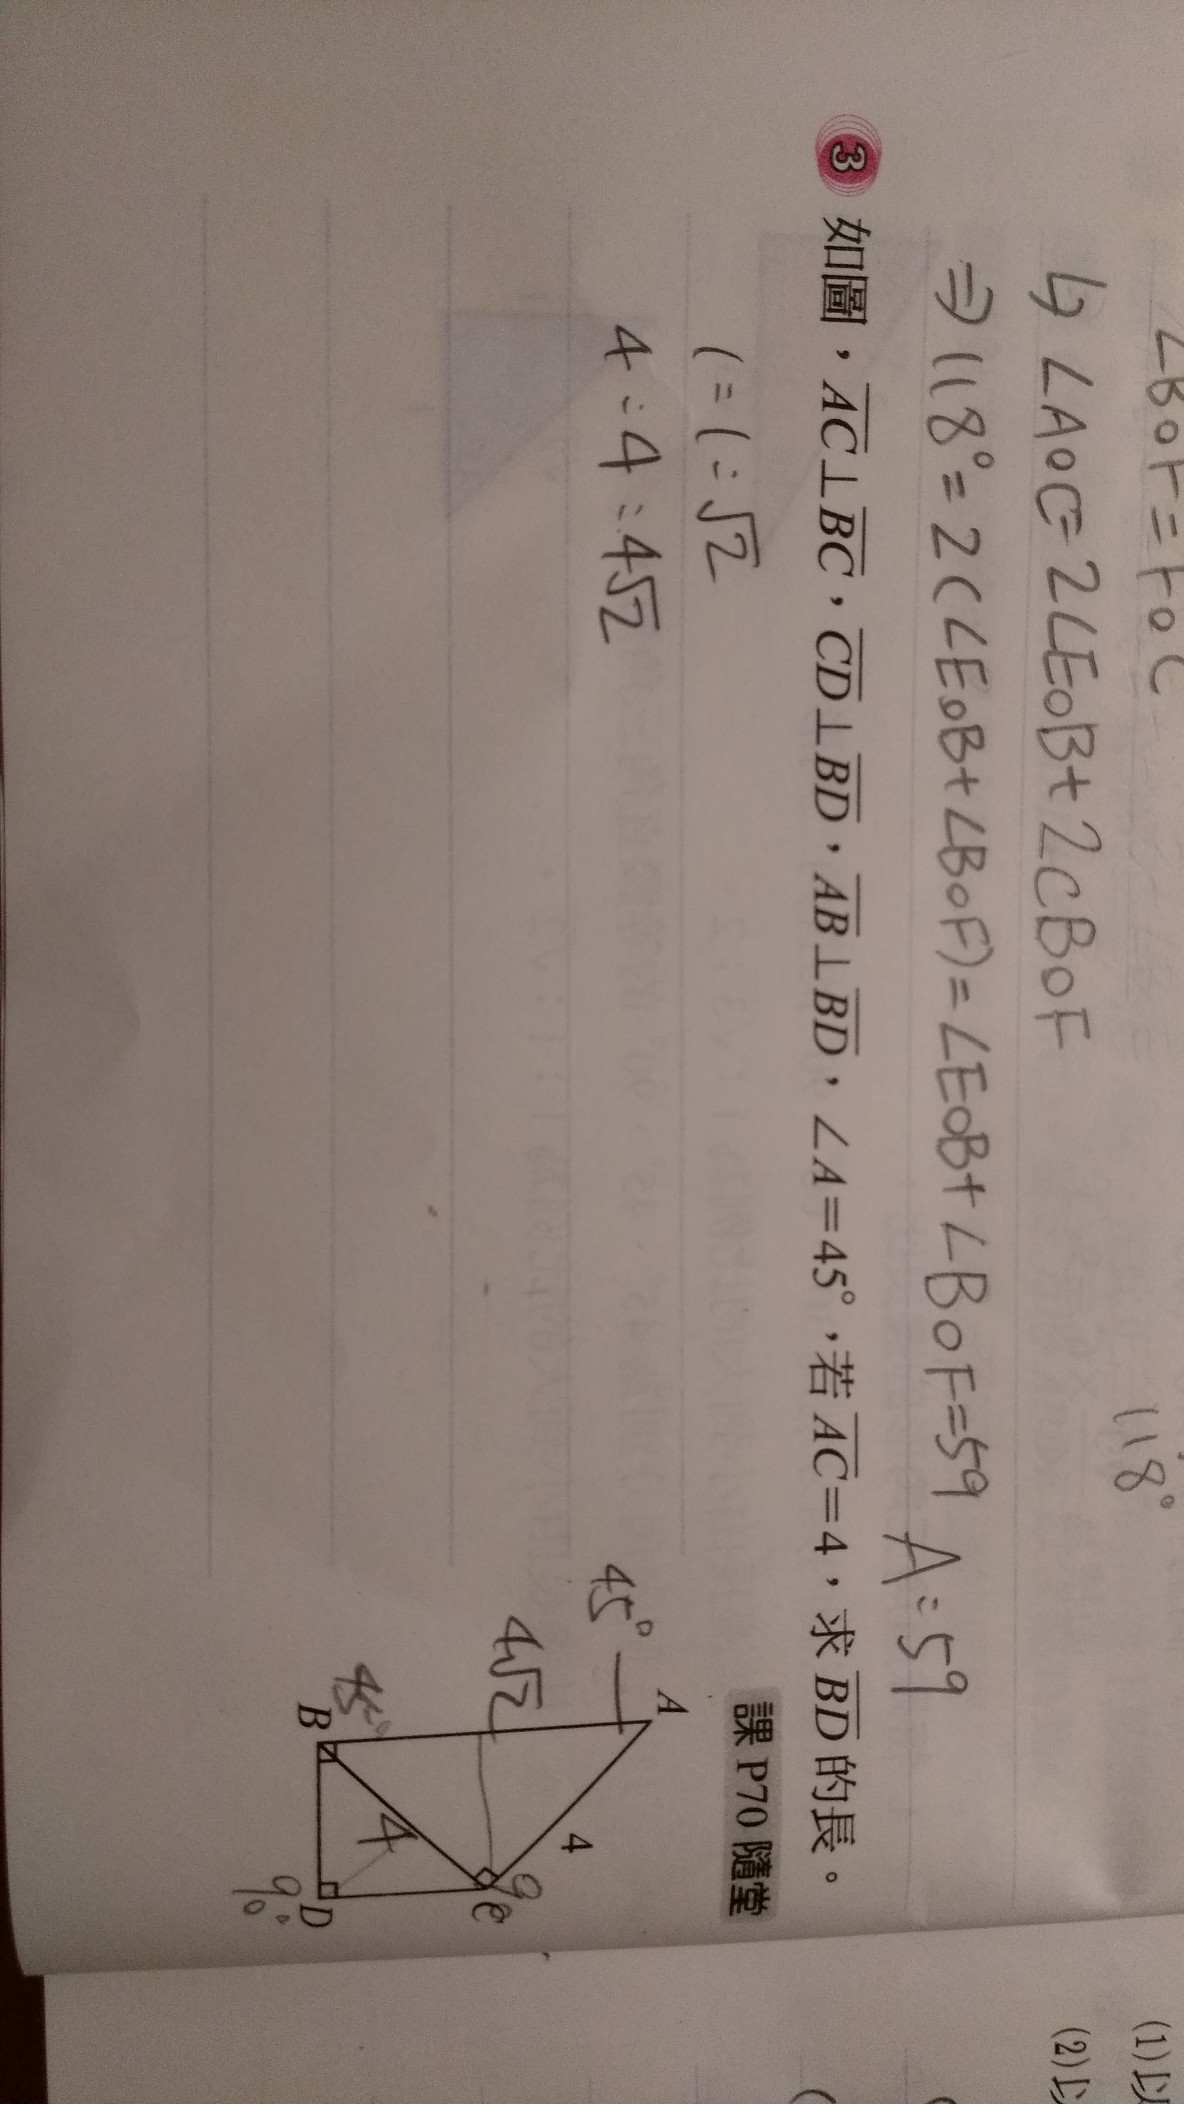 ∠BOF=FOC
118°
↳ ∠AOC=2∠EOB+2∠BOF
⇒ 118°=2(∠EOB+∠BOF)=∠EOB+∠BOF=59 A:59
3 如圖，AC⊥BC，CD⊥BD，AB⊥BD，∠A=45°，若AC=4，求BD的長。
課P70隨堂
1:1:√2
4:4:4√2
A
45°
4
4√2
C
4
45°
B
D
90°
(1)以
(2)以